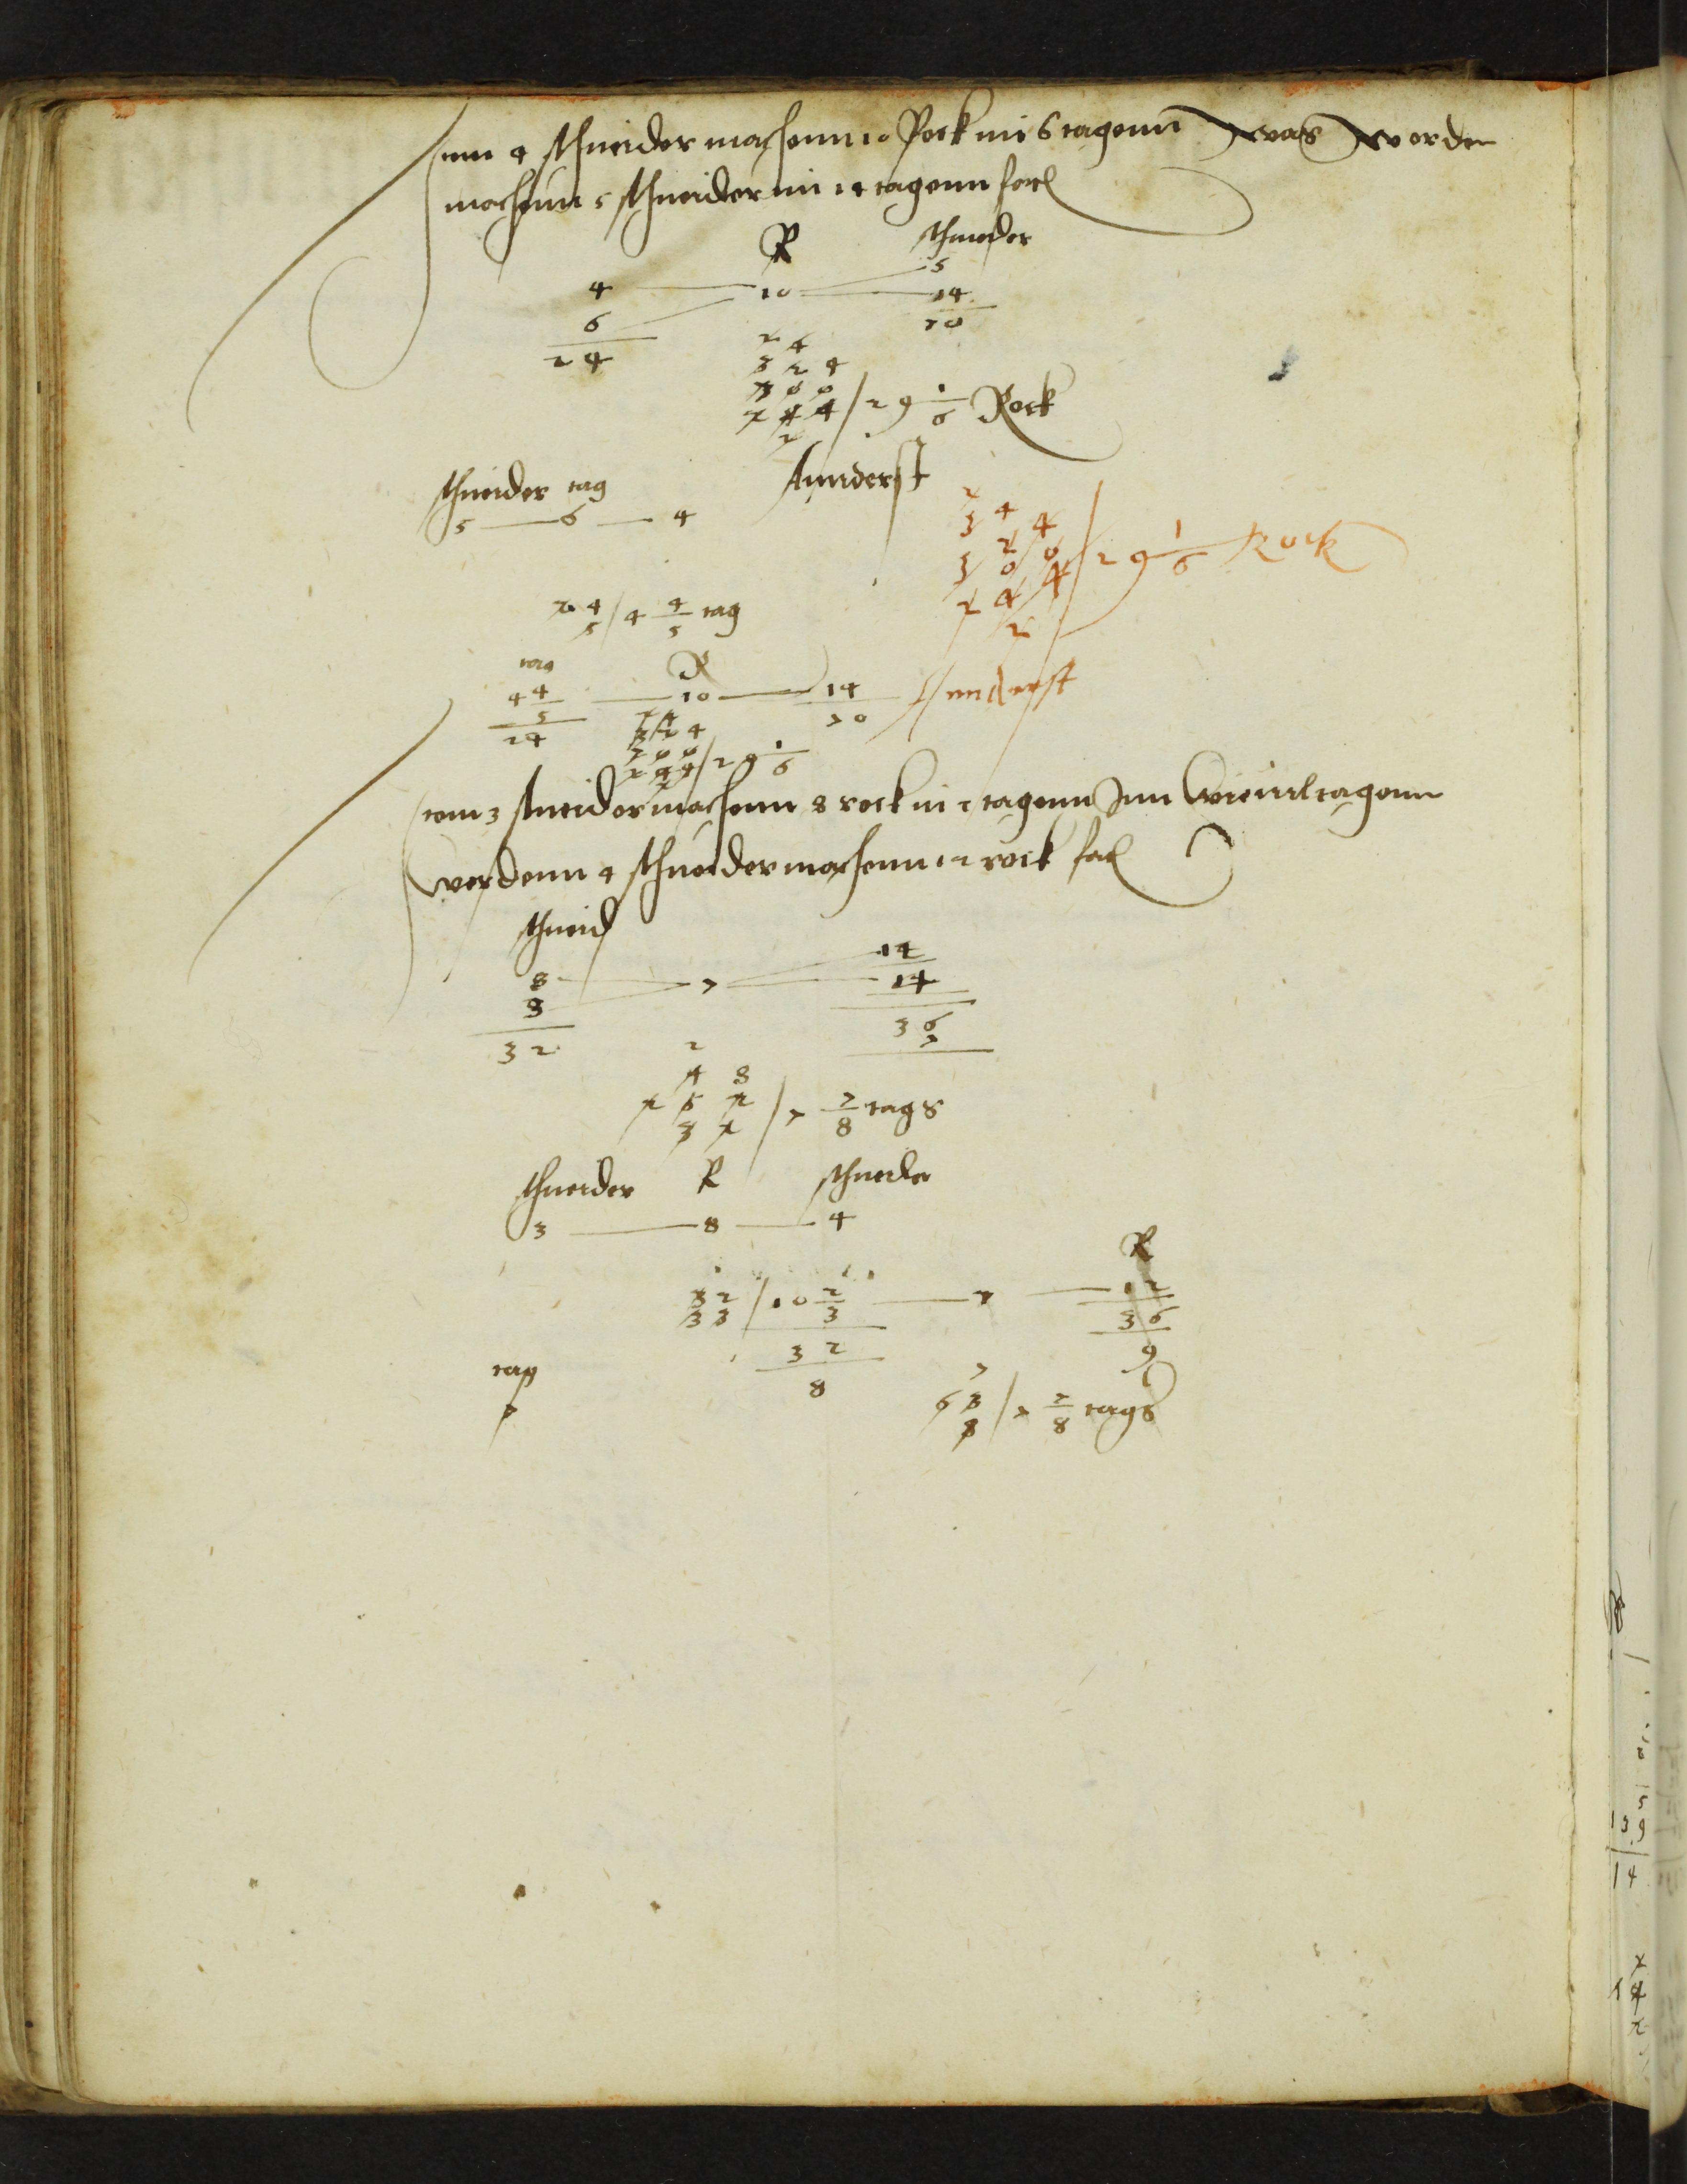 Item 4 schneider machenn 10 Rock in 6 tagenn was werden
machenn 5 schneider in 14 tagenn facl
R schneider
5
4 10 14
6 70
24
2 4
3 2 4
7 0 0 / 29 1/6 Rock
2 4 4
2
schneider tag Annderst
5 6 4
2 4 / 4 4/5 tag
5
2
3 4 4
2 0
3 0 4 / 29 1/6 Rock
2 4
2
tag R
4 4/5 10 14 Annderst
24 70
2 4
3 2 4
7 0 0 / 29 1/6
2 4 4
Item 3 schneider machenn 8 rock in 7 tagenn Inn wievil tagenn
werdenn 4 schneider machenn 12 rock facl
schneid
12
8 7 14
3 2 36
7
2
4 8
2 5 2 / 7 7/8 tags
3 2
schneider R schneider
3 8 4
R
32 / 10 2/3 7 12
33 36
32 9
8
tag
7
7
63 / 7 7/8 tags
8
139
14